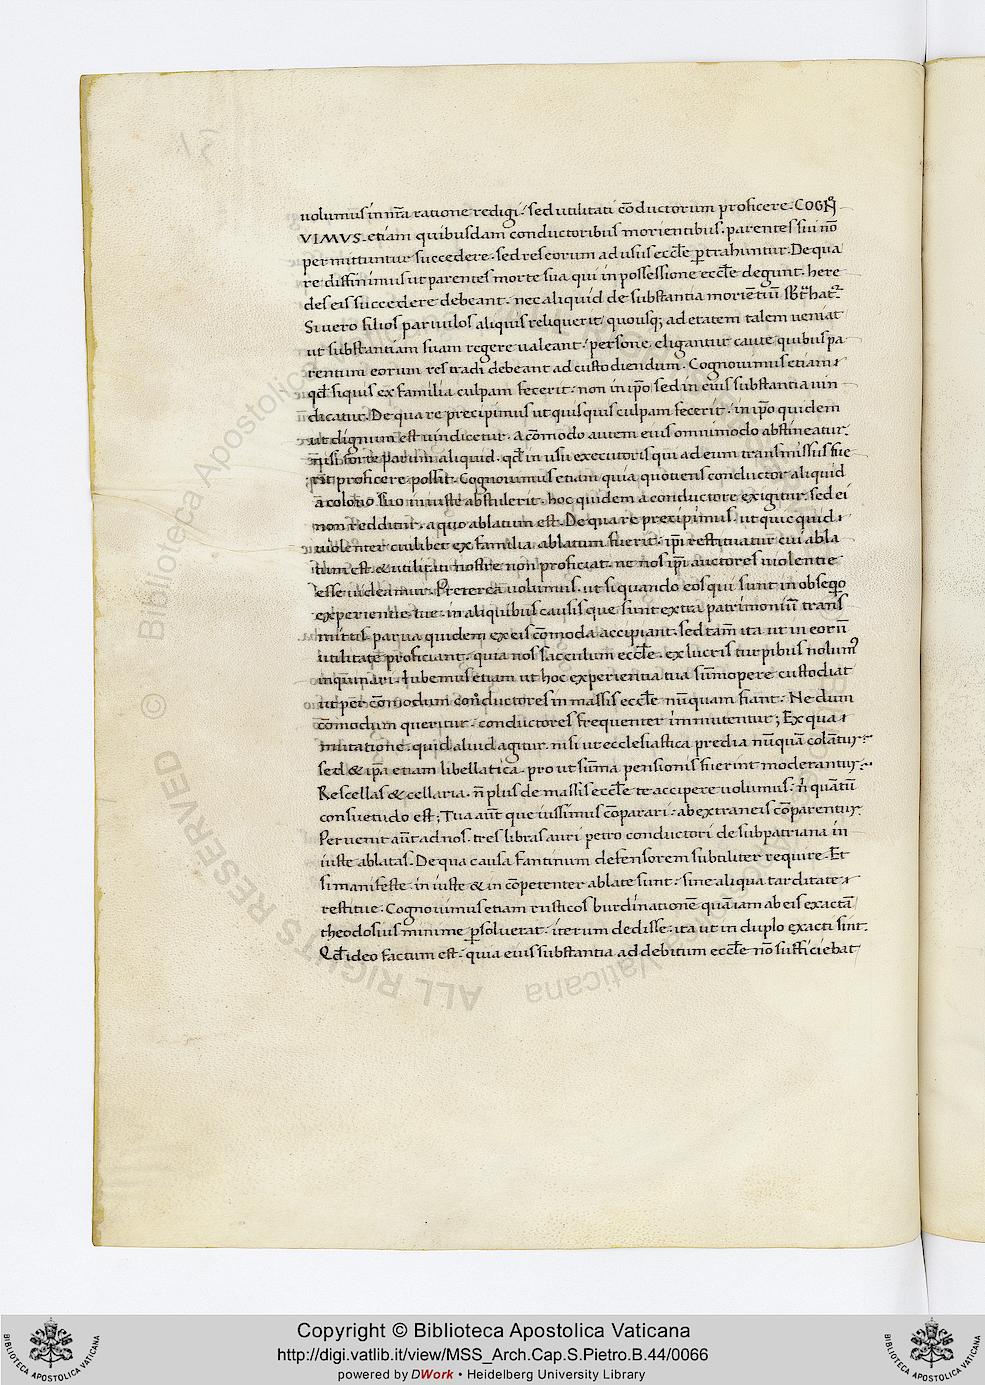 uolumus in nr̄a ratione redigi. sed utilitati cōductorum proficere. COGN̊
VIMVS. etiam quibusdam conductoribus morientibus. parentes sui nō
permittuntur succedere. sed res eorum ad usus eccl̄e ꝑtrahuntur. De qua
re diffinimus ut parentes morte sua qui in possessione eccl̄e degunt. here
des eis succedere debeant. nec aliquid de substantia moriētiū
Si uero filios paruulos aliquis reliquerit quousq; ad etatem talem ueniat
ut substantiam suam regere ualeant. persone eligantur caute quibus pa
rentum eorum res tradi debeant ad custodiendum. Cognouimus etiam
qd̄ siquis ex familia culpam fecerit. non in ip̄o sed in eius substantia uin
dicatur. De qua re precipimus ut quisquis culpam fecerit. in ip̄o quidem
ut dignum est uindicetur. a cōmodo autem eius omnimodo abstineatur.
nisi forte parum aliquid. qd̄ in usū executoris qui ad eum transmissus fue
rit proficere possit. Cognouimus etiam quia quotiens conductor aliquid
a colono suo iniuste abstulerit. hoc quidem a conductore exigitur. sed ei
non redditur. a quo ablatum est. De qua re precipimus. ut quicquid
uiolenter cuilibet ex familia ablatum fuerit. ip̄i restituatur cui abla
tum est. & utilitati nostre non proficiat. ne nos ip̄i auctores uiolentie
esse uideamur. Preterea uolumus. ut si quando eos qui sunt in obseq̊o
experientie tue. in aliquibus causis que sunt extra patrimoniū trans
mittis. parua quidem ex eis cōmoda accipiant. sed tam̄ ita ut in eorū
utilitate proficiant. quia nos sacculum eccl̄e. ex lucris turpibus nolumꝰ
inquinari. Iubemus etiam ut hoc experientia tua sūmopere custodiat
ut per cōmodum conductores in massis eccl̄e nūquam fiant. Ne dum
cōmodum queritur. conductores frequenter immutentur; Ex qua
mutatione. quid aliud agitur. nisi ut ecclesiastica predia nūquā colantur.
sed & ip̄a etiam libellatica. pro ut sūma pensionis fuerint moderantur.
Rescellas & cellaria. n̄ plus de massis eccl̄e te accipere uolumus. n̄ quantū
consuetudo est; Tua aut̄ que iussimus cōparari. ab extraneis cōparentur.
Peruenit aut̄ ad nos. tres libras auri petro conductori de subpatriana in
iuste ablatas. De qua causa fantinum defensorem subtiliter require. Et
si manifeste. in iuste & in cōpetenter ablate sunt. sine aliqua tarditate
restitue. Cognouimus etiam rusticos burdinationē quā iam ab eis exactā
theodosius minime ꝑsoluerat. iterum dedisse. ita ut in duplo exacti sint.
Qd̄ ideo factum est. quia eius substantia ad debitum eccl̄e nō sufficiebat
© Biblioteca Apostolica Vaticana
ALL RIGHTS RESERVED
Copyright © Biblioteca Apostolica Vaticana
http://digi.vatlib.it/view/MSS_Arch.Cap.S.Pietro.B.44/0066
powered by DWork • Heidelberg University Library
BIBLIOTECA APOSTOLICA VATICANA
BIBLIOTECA APOSTOLICA VATICANA